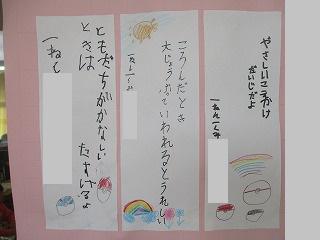 やさしいこえかけ
だいじだよ
一ねん一くみ
ころんだとき
大じょうぶていわれるとうれしい
一ねん一くみ
ともだちがかなしい
ときは　たすけるよ
一ねん